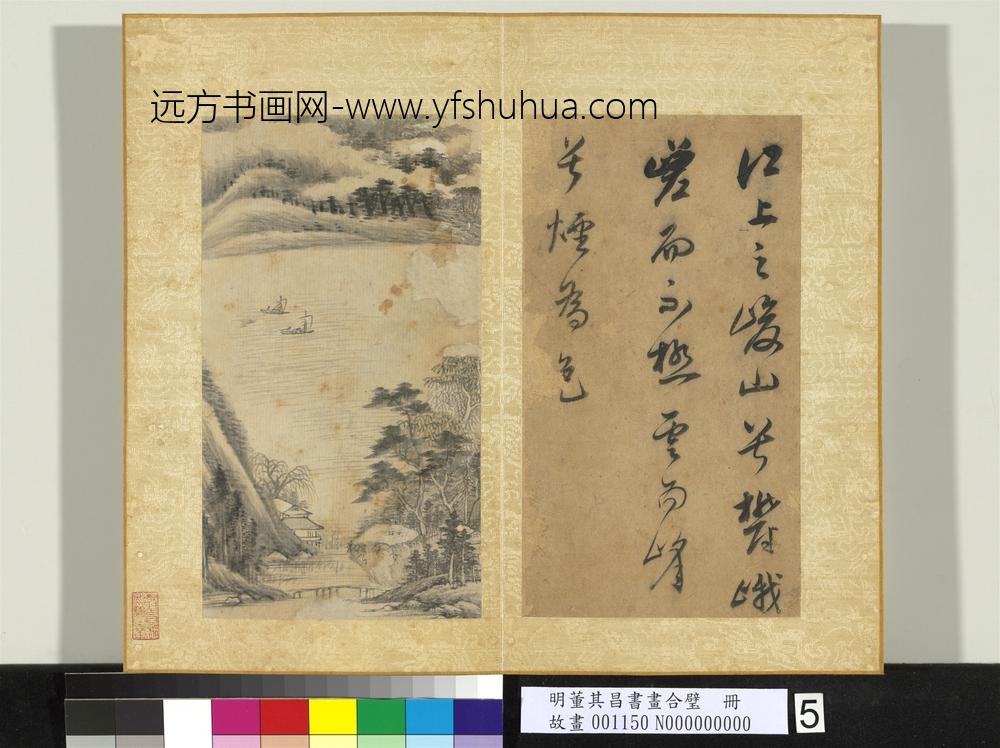 远方书画网-www.yfshuhua.com
江上之峻山兮鬱峨
嵯而不極雲為峰
兮煙為色
明董其昌書畫合璧 冊
故畫 001150 N000000000
5